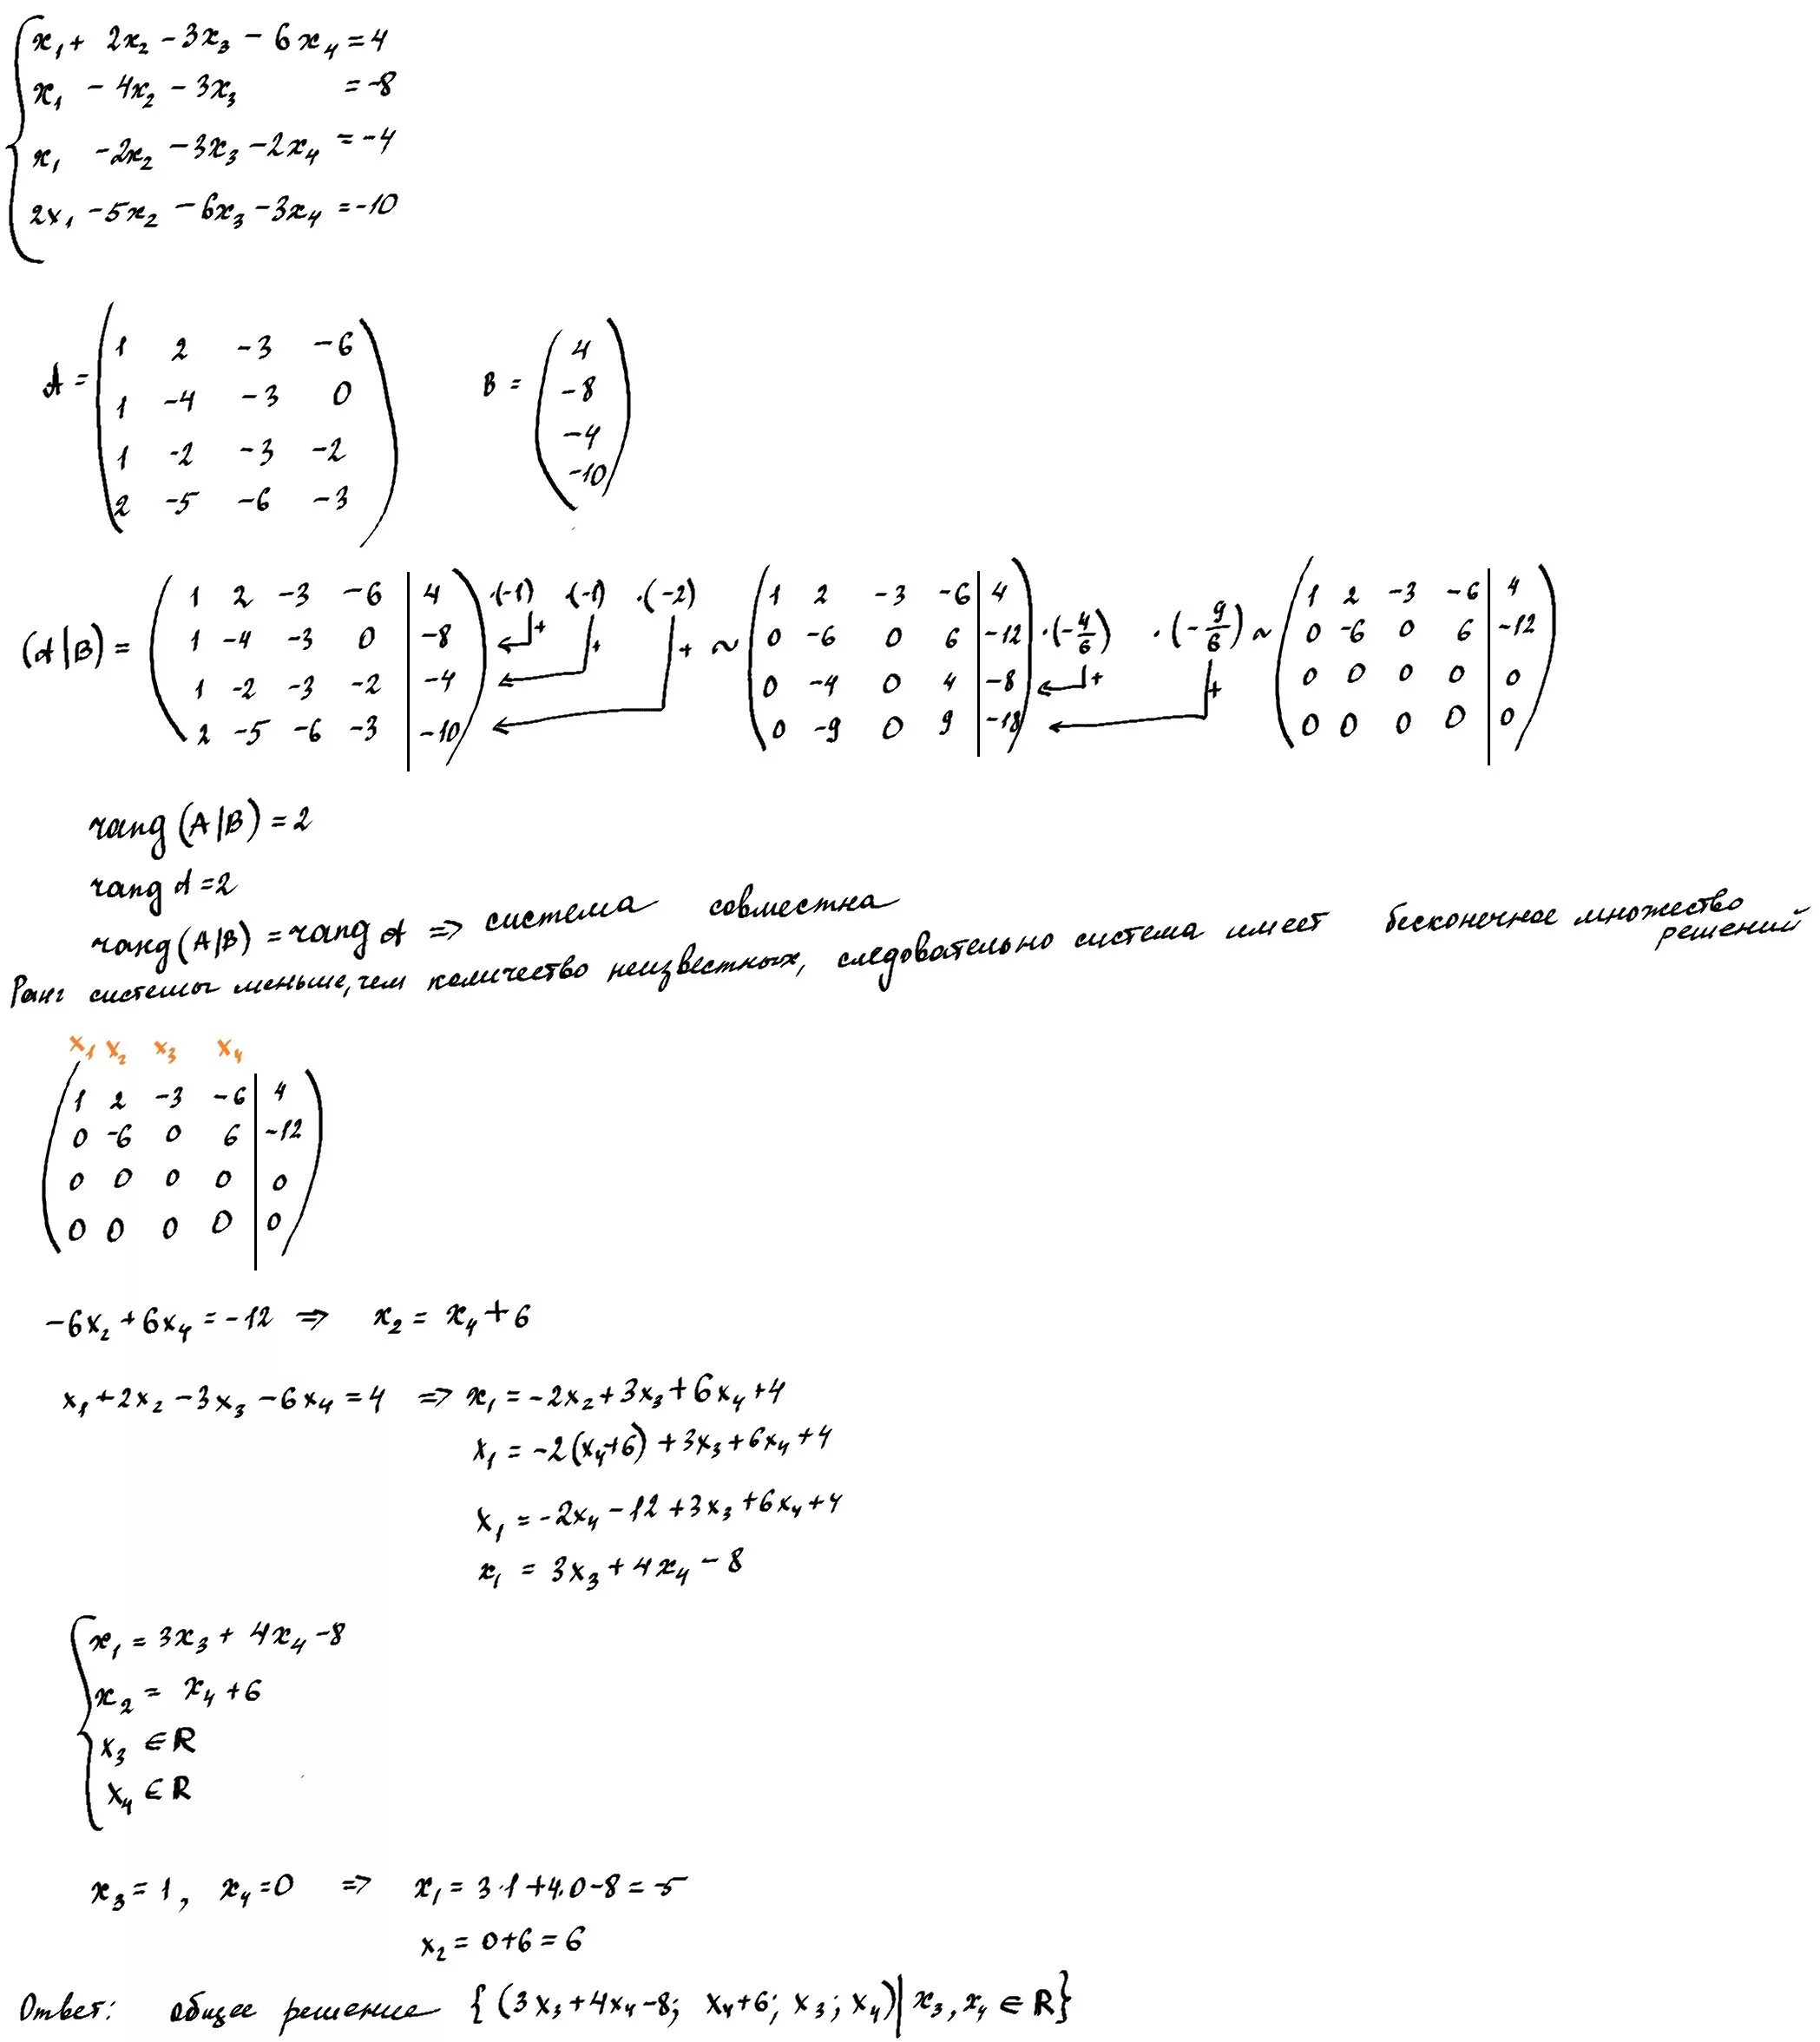 x₁ + 2x₂ - 3x₃ - 6x₄ = 4
x₁ - 4x₂ - 3x₃ = -8
x₁ - 2x₂ - 3x₃ - 2x₄ = -4
2x₁ - 5x₂ - 6x₃ - 3x₄ = -10
A = ( 1 2 -3 -6 ; 1 -4 -3 0 ; 1 -2 -3 -2 ; 2 -5 -6 -3 ) B = ( 4 ; -8 ; -4 ; -10 )
(A|B) = ( 1 2 -3 -6 | 4 ; 1 -4 -3 0 | -8 ; 1 -2 -3 -2 | -4 ; 2 -5 -6 -3 | -10 ) ·(-1) + ·(-1) + ·(-2) + ~ ( 1 2 -3 -6 | 4 ; 0 -6 0 6 | -12 ; 0 -4 0 4 | -8 ; 0 -9 0 9 | -18 ) ·(-4/6) + ·(-9/6) + ~ ( 1 2 -3 -6 | 4 ; 0 -6 0 6 | -12 ; 0 0 0 0 | 0 ; 0 0 0 0 | 0 )
rang (A|B) = 2
rang A = 2
rang (A|B) = rang A => система совместна
Ранг системы меньше, чем количество неизвестных, следовательно система имеет бесконечное множество решений
x₁ x₂ x₃ x₄
1 2 -3 -6 | 4
0 -6 0 6 | -12
0 0 0 0 | 0
0 0 0 0 | 0
-6x₂ + 6x₄ = -12 => x₂ = x₄ + 6
x₁ + 2x₂ - 3x₃ - 6x₄ = 4 => x₁ = -2x₂ + 3x₃ + 6x₄ + 4
x₁ = -2(x₄+6) + 3x₃ + 6x₄ + 4
x₁ = -2x₄ - 12 + 3x₃ + 6x₄ + 4
x₁ = 3x₃ + 4x₄ - 8
x₁ = 3x₃ + 4x₄ - 8
x₂ = x₄ + 6
x₃ ∈ R
x₄ ∈ R
x₃ = 1, x₄ = 0 => x₁ = 3·1 + 4·0 - 8 = -5
x₂ = 0 + 6 = 6
Ответ: общее решение { (3x₃ + 4x₄ - 8; x₄ + 6; x₃; x₄) | x₃, x₄ ∈ R }